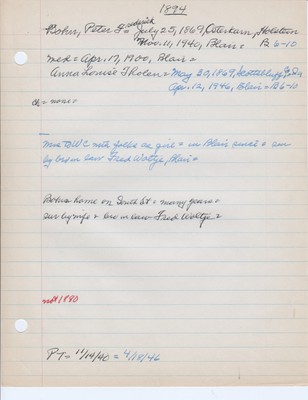 1894
Bohn, Peter Frederick = July 25, 1869, Osterham, Holstein
Nov. 11, 1940, Blair = B 6-10
med = Apr. 17, 1900, Blair =
Anna Louise Tholen = May 30, 1869, Scottsbluff
Apr. 12, 1946, Blair = B 6-10
ch = none =
Mvd to WC with folks as girl = in Blair since = sur
by bro in law Fred Woltje, Blair =
Bohns home on South St = many years =
sur by wife = bro in law Fred Woltje =
not 1890
PT = 11/14/40 = 4/18/46